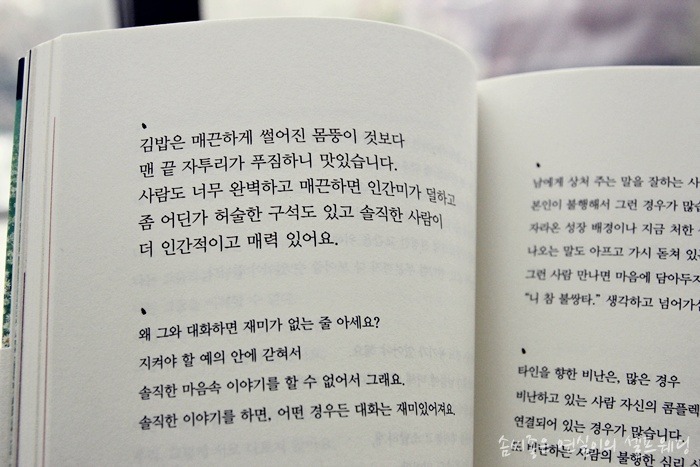 김밥은 매끈하게 썰어진 몸뚱이 것보다
맨 끝 자투리가 푸짐하니 맛있습니다.
사람도 너무 완벽하고 매끈하면 인간미가 덜하고
좀 어딘가 허술한 구석도 있고 솔직한 사람이
더 인간적이고 매력 있어요.
왜 그와 대화하면 재미가 없는 줄 아세요?
지켜야 할 예의 안에 갇혀서
솔직한 마음속 이야기를 할 수 없어서 그래요.
솔직한 이야기를 하면, 어떤 경우든 대화는 재미있어져요.
남에게 상처 주는 말을 잘하는 사
본인이 불행해서 그런 경우가 많습
자라온 성장 배경이나 지금 처한
나오는 말도 아프고 가시 돋쳐 있
그런 사람 만나면 마음에 담아두지
“니 참 불쌍타.” 생각하고 넘어가
타인을 향한 비난은, 많은 경우
비난하고 있는 사람 자신의 콤플렉
연결되어 있는 경우가 많습니다.
비난하는 사람의 불행한 심리
솜씨좋은 연실이의 셀프웨딩